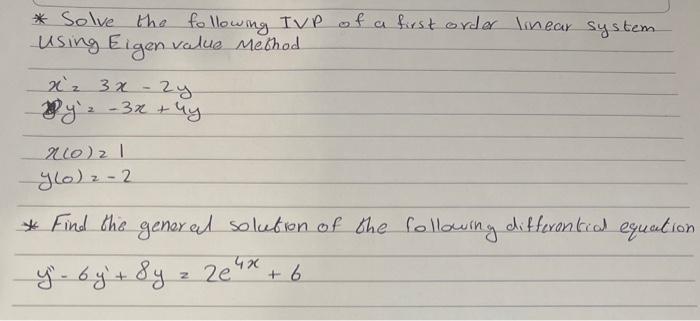 * Solve the following IVP of a first order linear system
using Eigen value Method
x' = 3x - 2y
y' = -3x + 4y
x(0) = 1
y(0) = -2
* Find the general solution of the following differential equation
y'' - 6y' + 8y = 2e^{4x} + 6